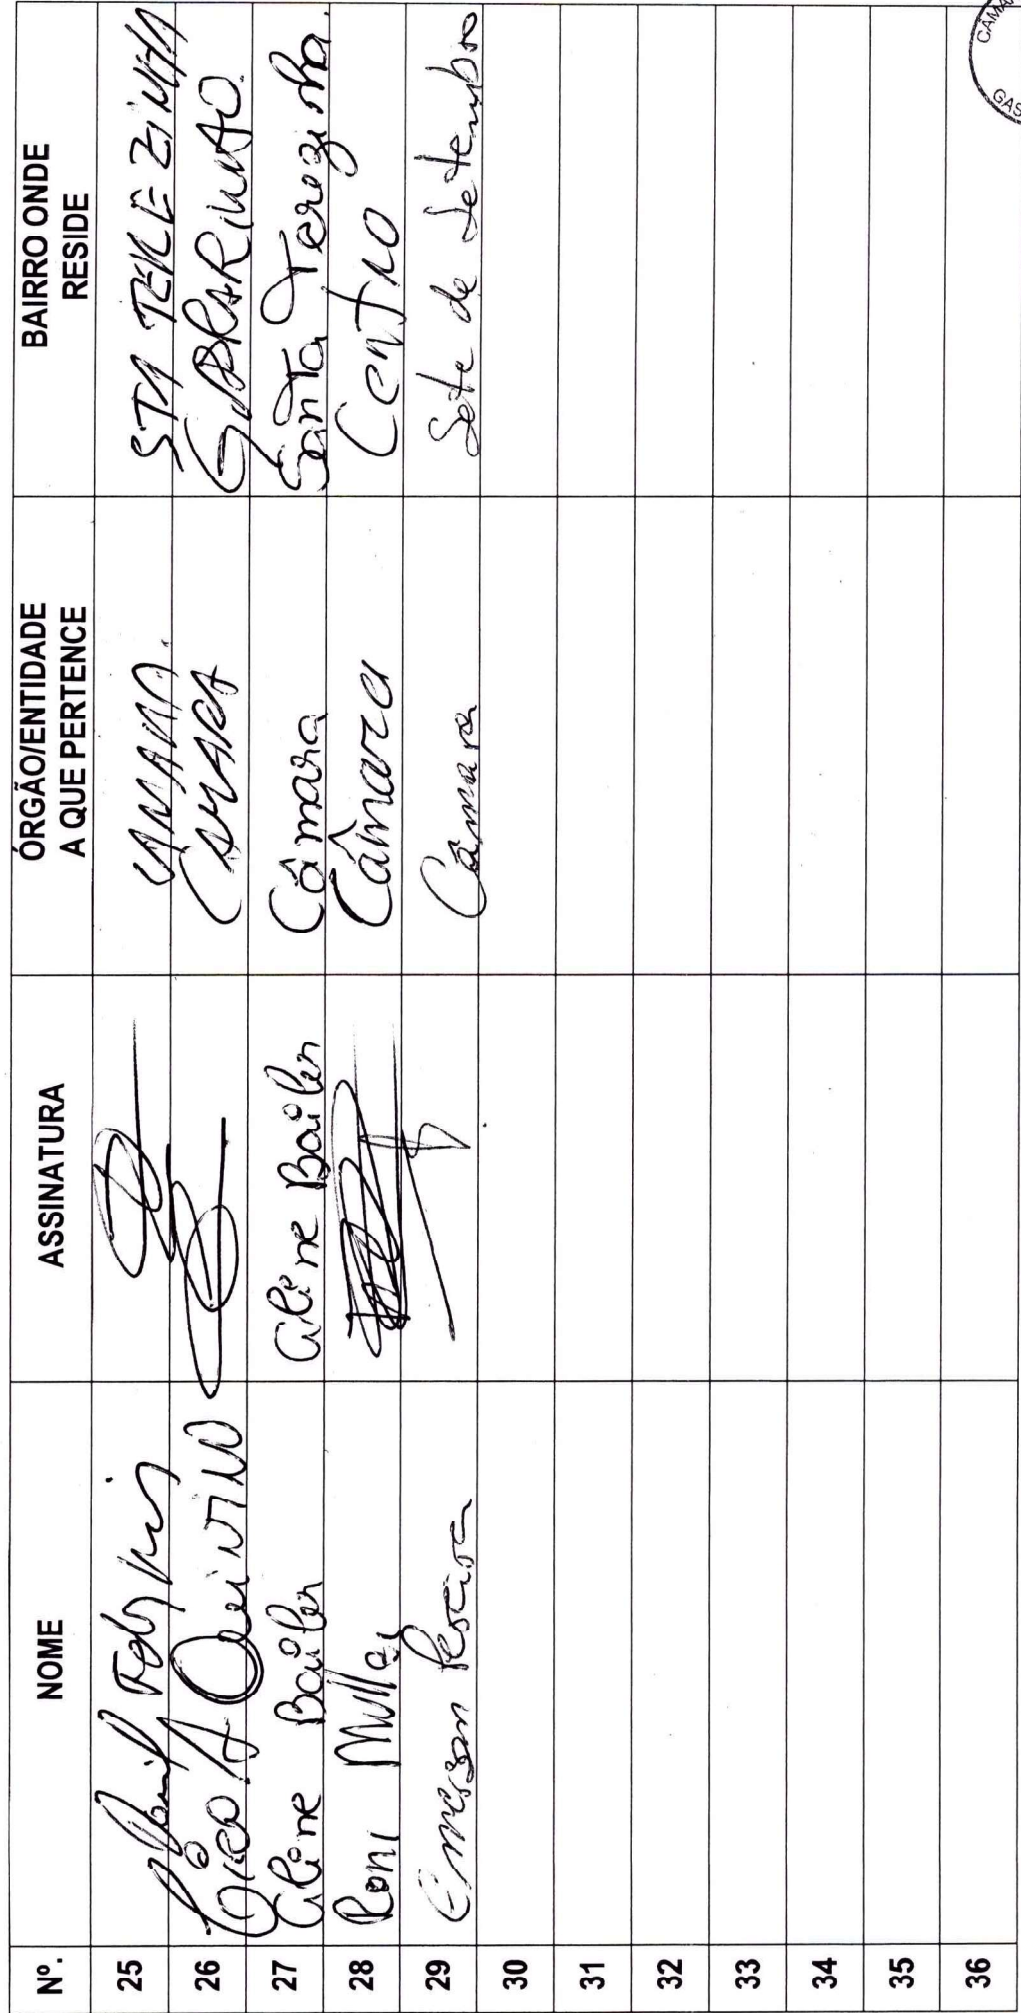 Nº. NOME ASSINATURA ÓRGÃO/ENTIDADE A QUE PERTENCE BAIRRO ONDE RESIDE
25 CAMARA. STA TEREZINHA
26 CAMARA
27 Aline Bailer Aline Bailer Câmara Santa Terezinha
28 Roni Muller Câmara Centro
29 Emerson Câmara Sete de Setembro
30
31
32
33
34
35
36
CÂMA
GAS